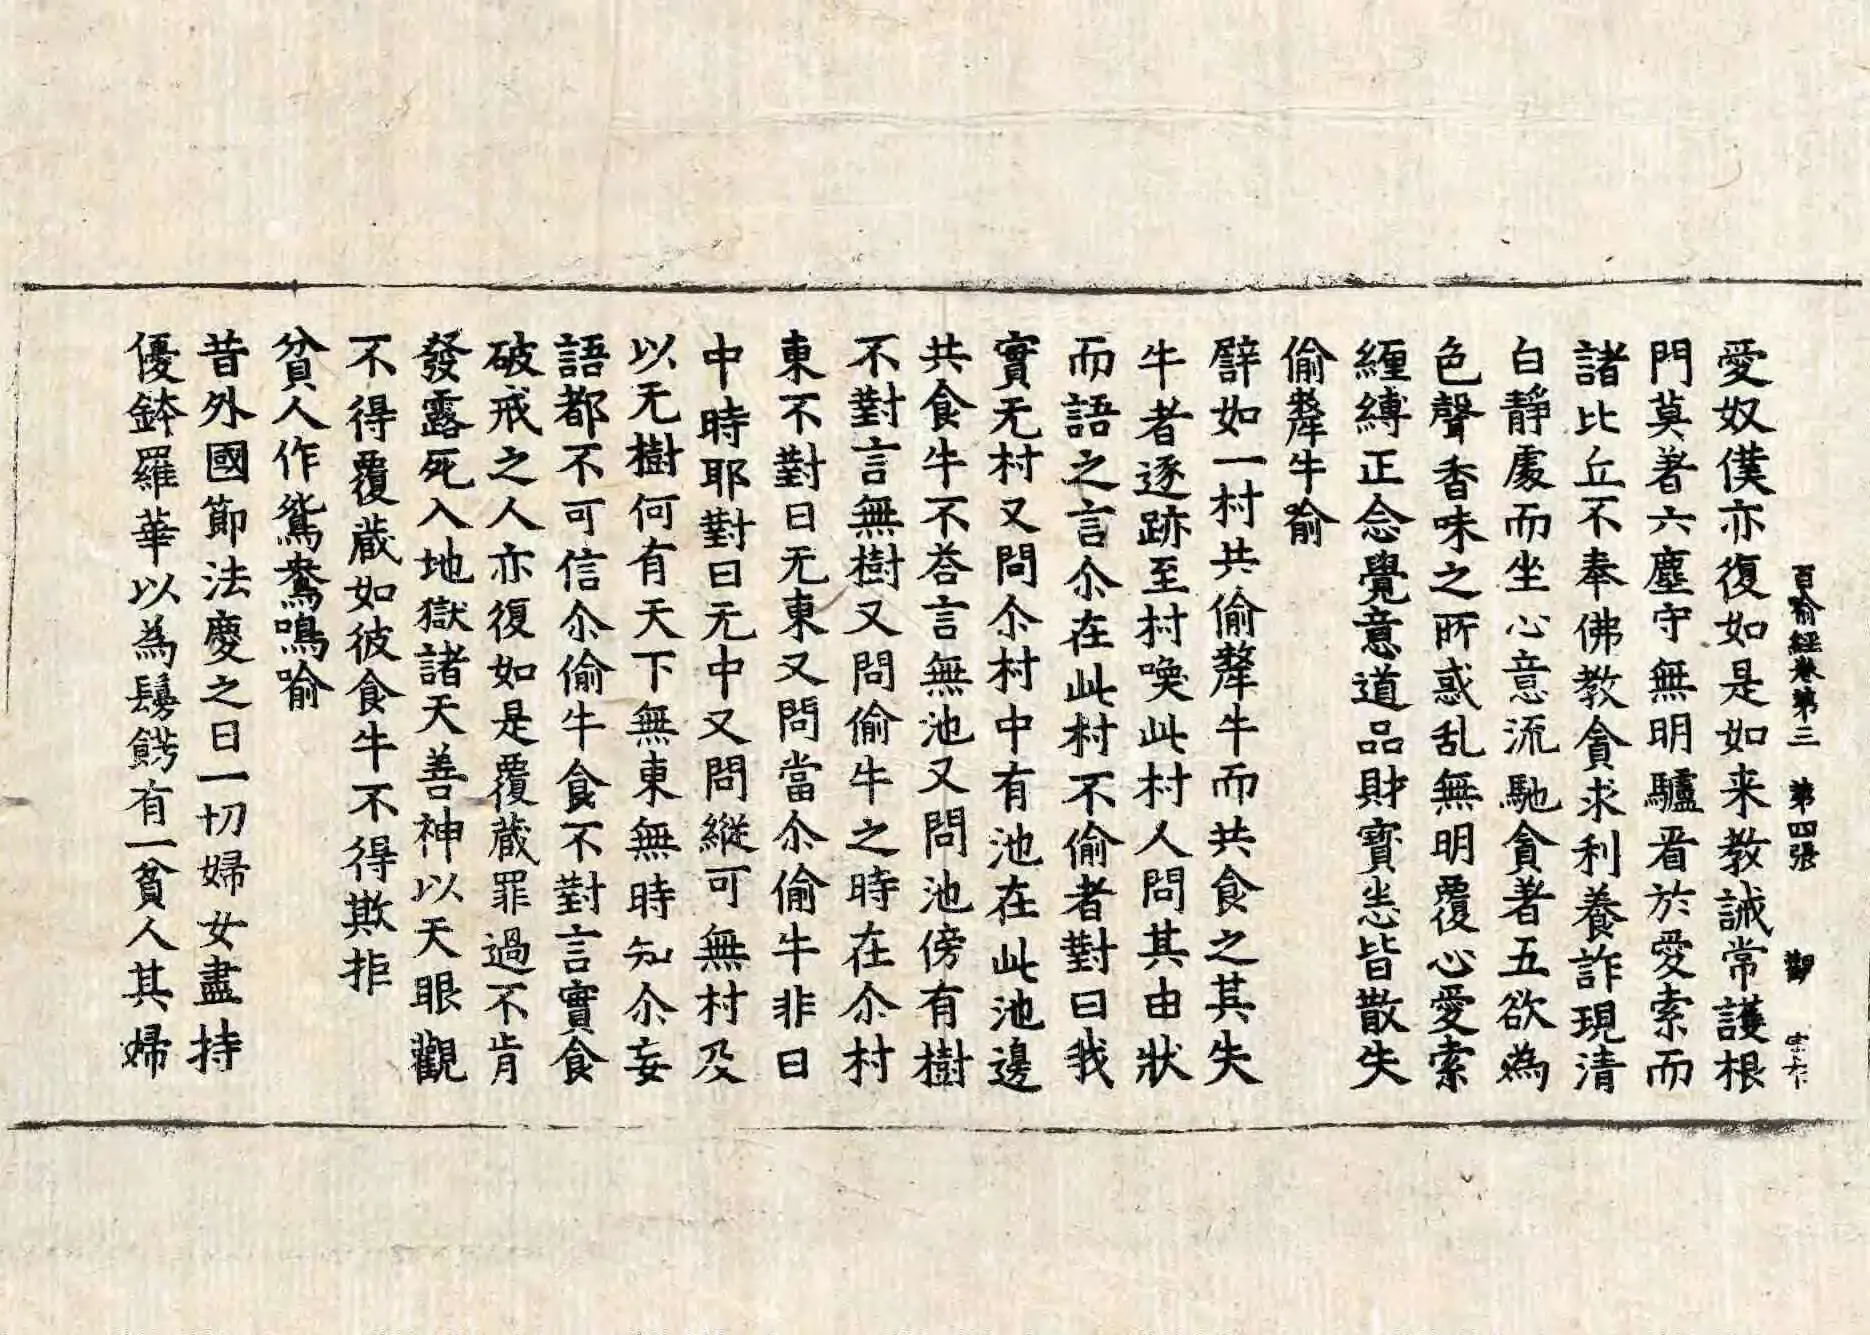 百喻經卷第三 第四張 觀
愛奴僕亦復如是如来教誡常護根
門莫著六塵守無明驢看於愛索而
諸比丘不奉佛教貪求利養詐現清
白靜處而坐心意流馳貪著五欲為
色聲香味之所惑乱無明覆心愛索
纒縛正念覺意道品財寶恙皆散失
偷犛牛喻
譬如一村共偷犛牛而共食之其失
牛者逐跡至村喚此村人問其由狀
而語之言尒在此村不偷者對曰我
實无村又問尒村中有池在此池邊
共食牛不荅言無池又問池傍有樹
不對言無樹又問偷牛之時在尒村
東不對曰无東又問當尒偷牛非日
中時耶對曰无中又問縱可無村及
以无樹何有天下無東無時知尒妄
語都不可信尒偷牛食不對言實食
破戒之人亦復如是覆蔵罪過不肯
發露死入地獄諸天善神以天眼觀
不得覆蔵如彼食牛不得欺拒
貧人作鴛鴦鳴喻
昔外國節法慶之日一切婦女盡持
優鉢羅華以為鬘餝有一貧人其婦